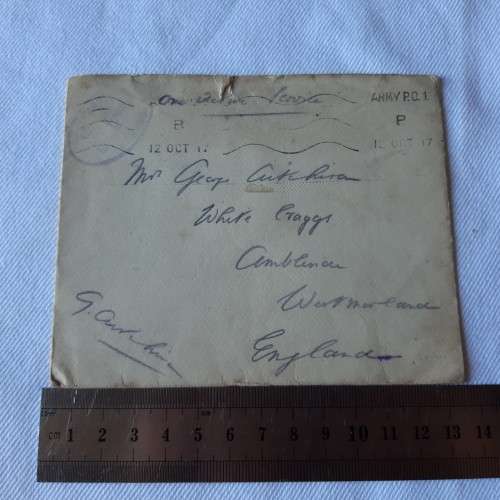 on active Service
ARMY P.O. 1
B P
12 OCT 17 12 OCT 17
Mrs George Aitchison
White Craggs
Ambleside
Westmorland
England
G. Aitchison
cm 1 2 3 4 5 6 7 8 9 10 11 12 13 14